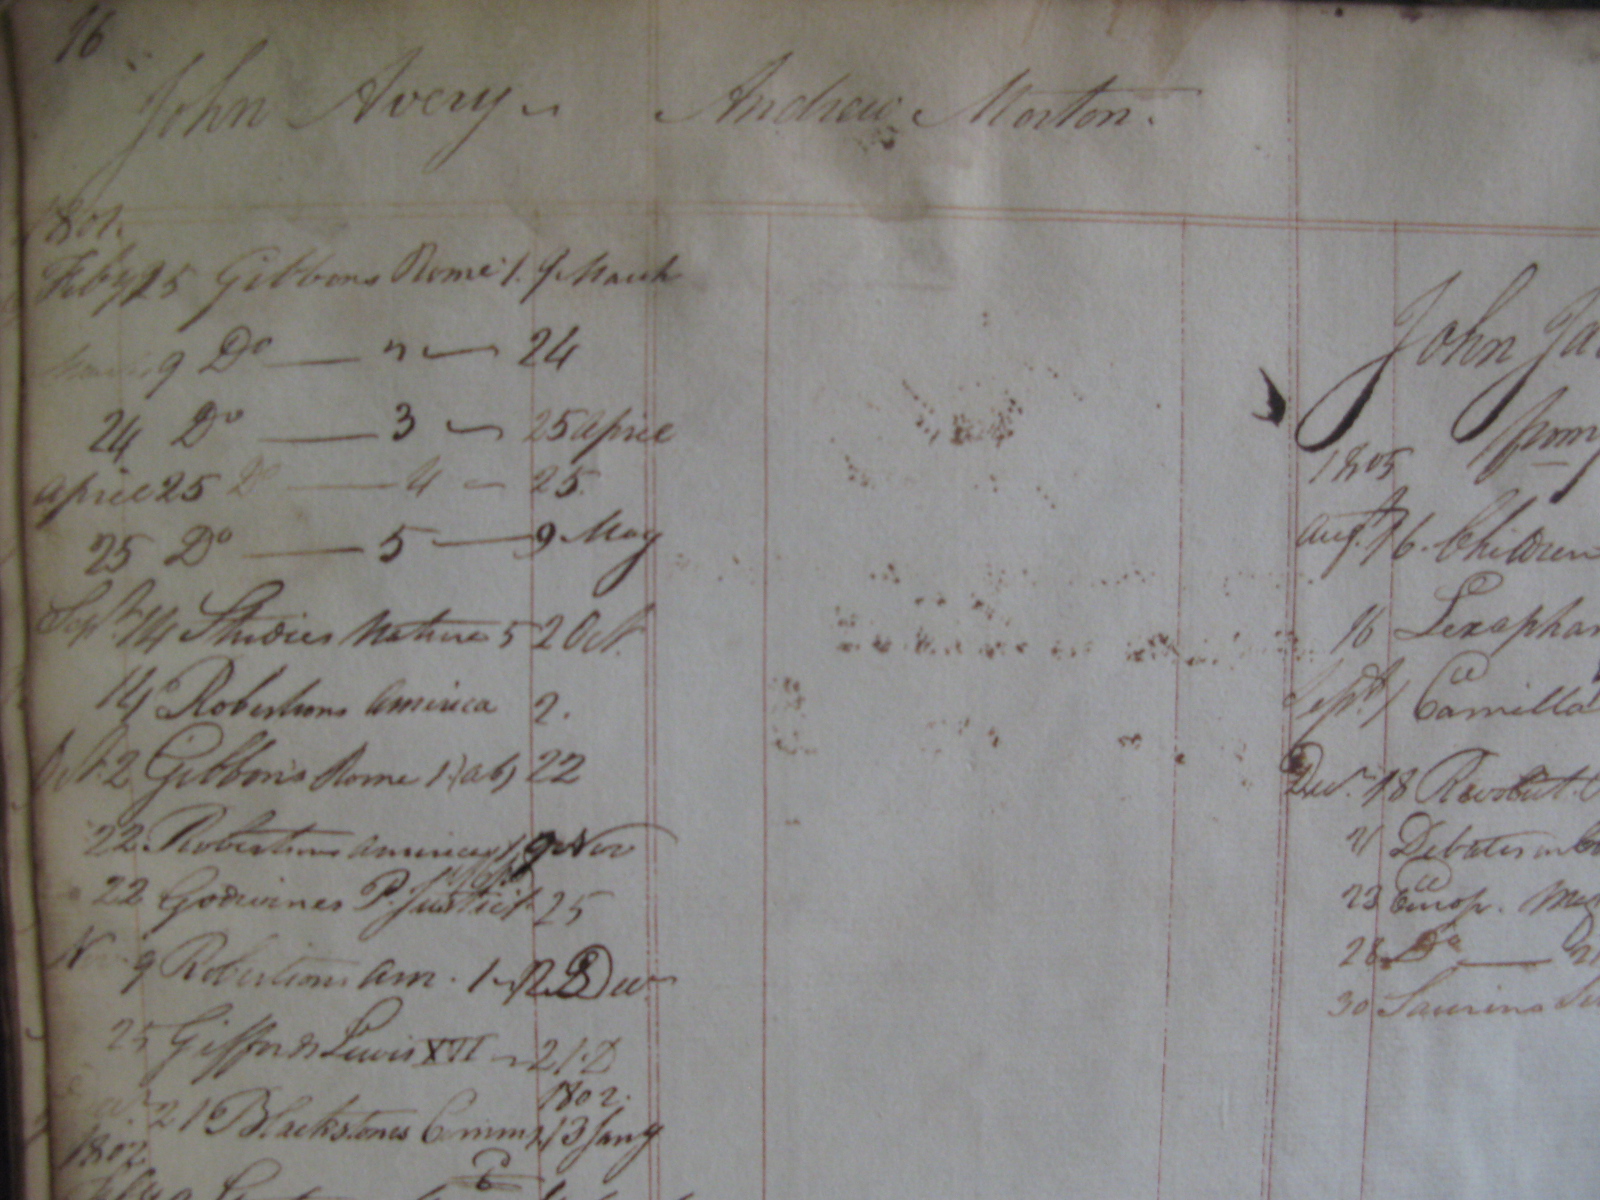 16
John Avery Andrew Morton.
1801.
Feby 25 Gibbons Rome 1. 9 March
9 Do — 2 — 24
24 Do — 3 — 25 April
April 25 Do — 4 — 25
25 Do — 5 — 9 May
Sept. 14 Studies Nature 5 2 Oct.
14 Robertsons America 2.
Oct. 2 Gibbons Rome 1 (ab) 22
22 Robertsons America 1. 9 Nov
22 Godwines P. Justice 25
N 9 Robertsons Am. 1 Dec
25 Giffords Lewis XVI 21. D
1802.
21 Blackstones Comm 13 Jany
1802
John Ja
from
1805
Augt. 16. Children
16 Lexaphan
Sept 1 Camilla
Dec. 18 Revolut.
21 Debates in Co
23 Europ. Mag
28 Do —
30 Saurins